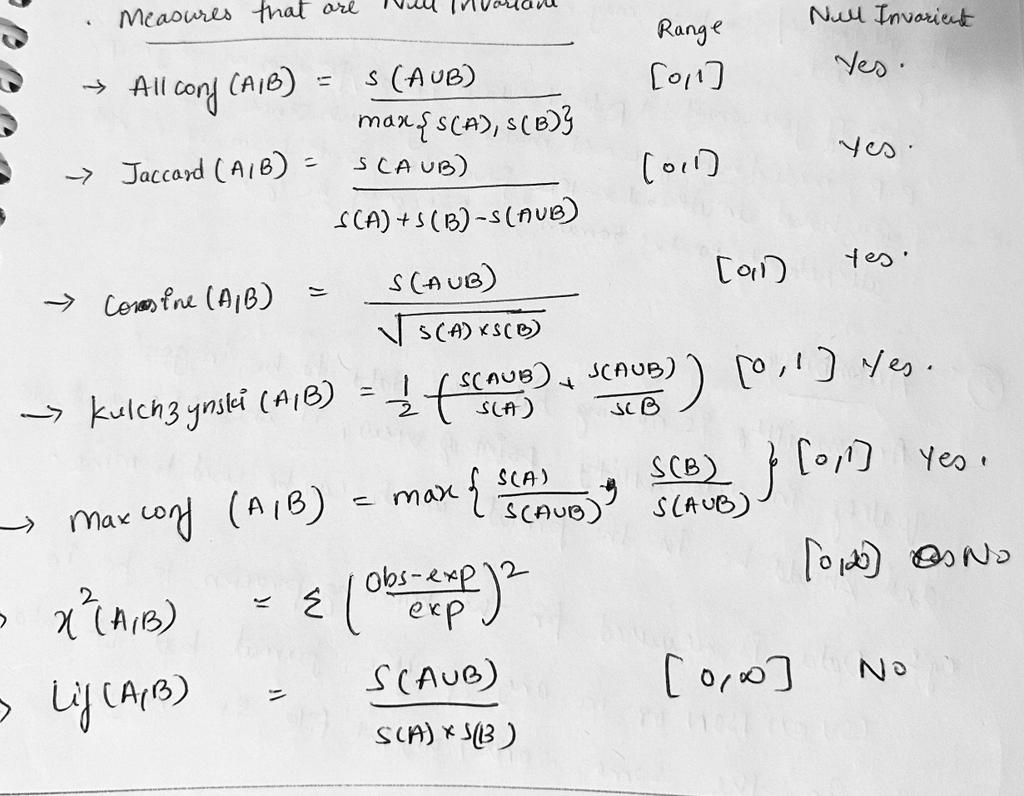 . Measures that are Null Invariant
Range Null Invarient
→ All conf (A,B) = s(A∪B) / max{s(A), s(B)} [0,1] Yes.
→ Jaccard (A,B) = s(A∪B) / s(A)+s(B)-s(A∪B) [0,1] Yes.
→ Cosine (A,B) = s(A∪B) / √s(A)×s(B) [0,1) Yes.
→ Kulchzynski (A,B) = 1/2 ( s(A∪B)/s(A) + s(A∪B)/s(B ) [0,1] Yes.
→ Max conf (A,B) = max { s(A)/s(A∪B), s(B)/s(A∪B) } [0,1] Yes.
χ²(A,B) = Σ ( obs-exp / exp )² [0,∞] No
Lif (A,B) = s(A∪B) / s(A)×s(B) [0,∞] No